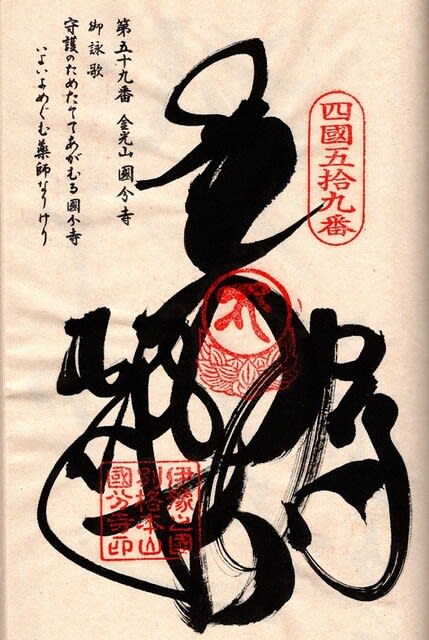 四國五拾九番
第五十九番　金光山　國分寺
御詠歌
守護のためたててあがむる國分寺
いよいよめぐむ薬師なりけり
伊豫之國
別格本山
國分寺印